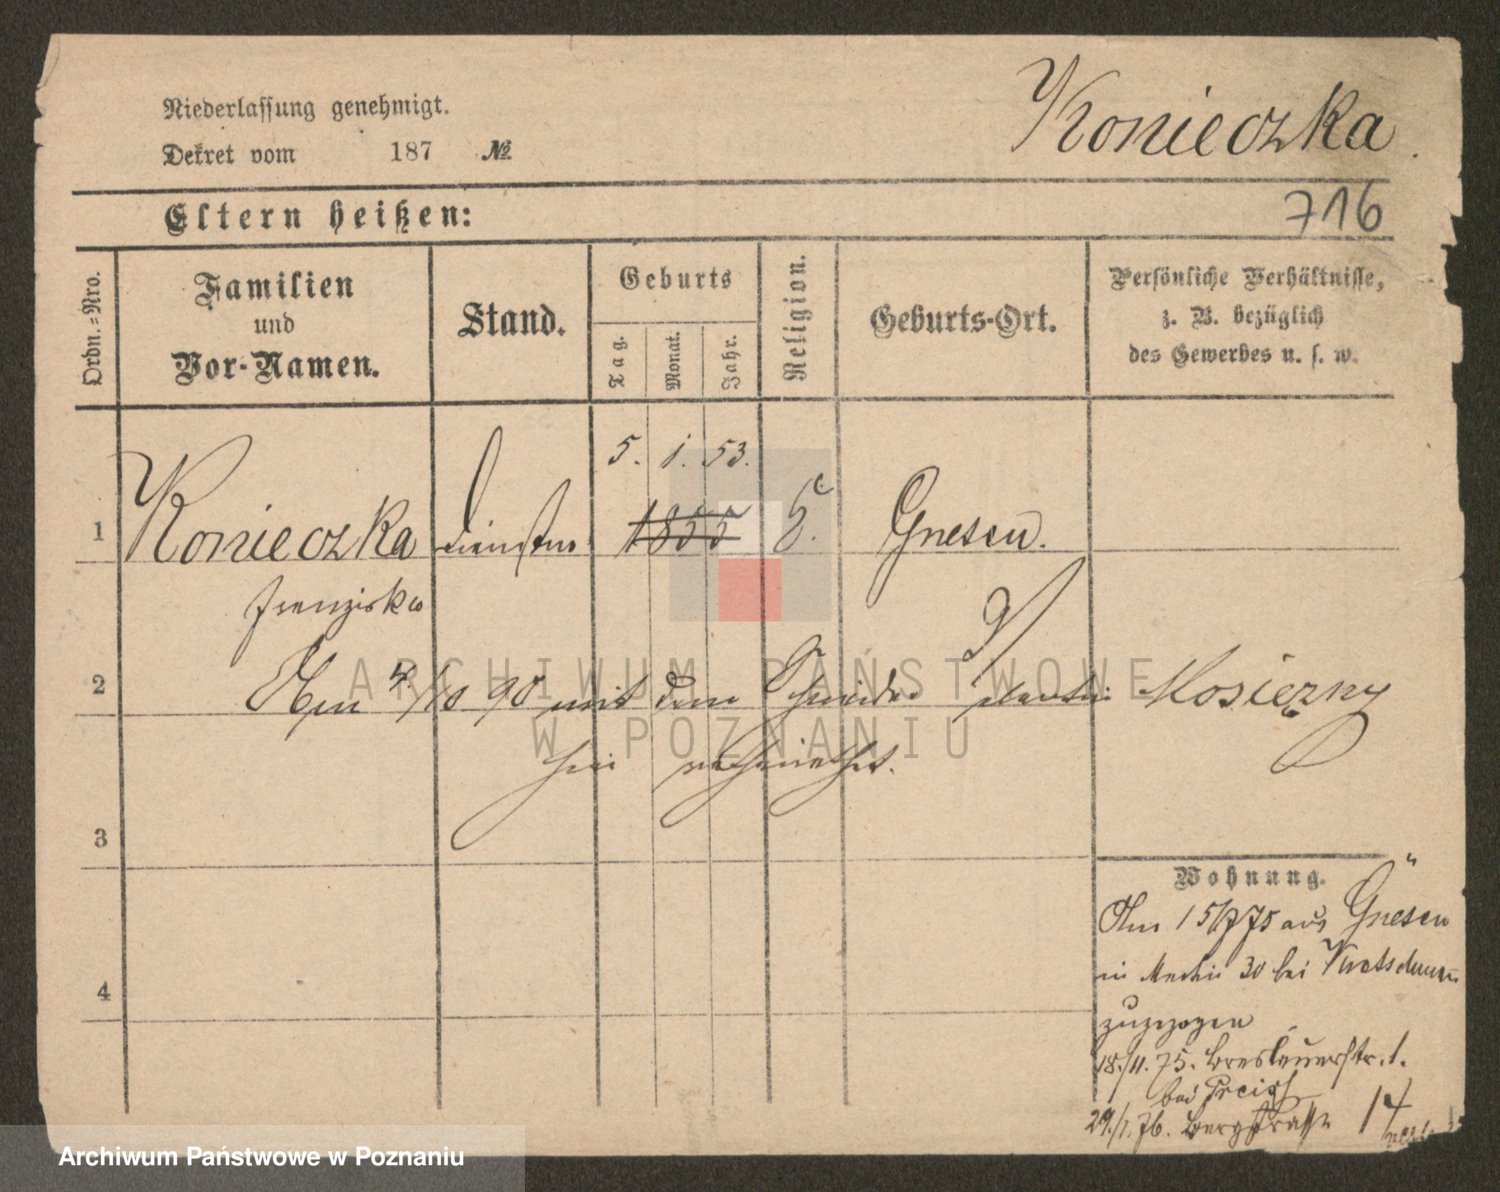 Niederlassung genehmigt.
Dekret vom 187 №
Konieczka
Eltern heißen:
716
Ordn.-Nro.
Familien
und
Vor-Namen.
Stand.
Geburts
Tag.
Monat.
Jahr.
Religion.
Geburts-Ort.
Persönliche Verhältnisse,
z. B. bezüglich
des Gewerbes u. s. w.
5. 1. 53.
1 Konieczka 1855 Gnesen.
Franziska
2 Am 4/10 90 mit dem Schneider Mosiężny
hier verheirathet.
ARCHIWUM PAŃSTWOWE
W POZNANIU
3
Wohnung.
Am 15/7 75 aus Gnesen
in 30 bei
4
zugezogen
18./11. 75. Breslauerstr. 1.
bei
29./1. 76. Bergstrasse 14
Archiwum Państwowe w Poznaniu